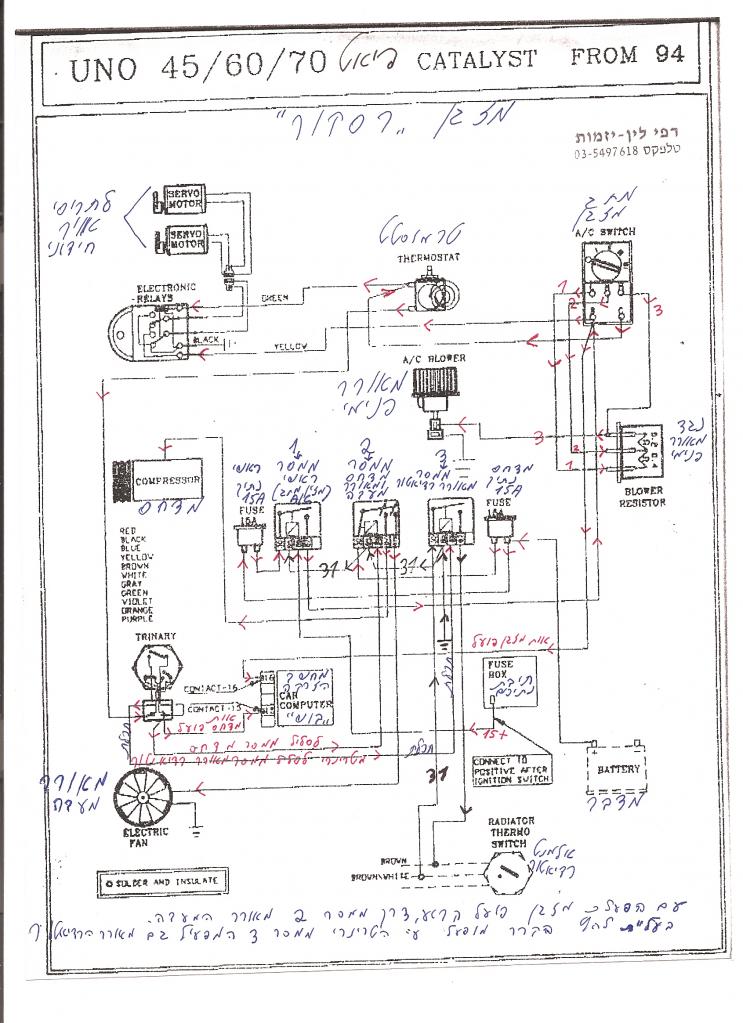 UNO 45/60/70 פיאט CATALYST FROM 94
מזגן "רסדור"
רפי לין-יזמות
טלפקס 03-5497618
SERVO MOTOR
SERVO MOTOR
לתריסי
אויר
חיצוני
טרמוסטט
THERMOSTAT
מתג
מזגן
A/C SWITCH
ELECTRONIC
RELAYS
GREEN
BLACK
YELLOW
1
2
3
A/C BLOWER
מאוורר
פנימי
3
2
1
נגד
מאוורר
פנימי
BLOWER
RESISTOR
COMPRESSOR
מדחס
ראשי
נתיך
15A
FUSE
15A
1
ממסר
ראשי
2
ממסר
מדחס
ומאוורר
מעבה
3
ממסר
מאוורר רדיאטור
מדחס
נתיך
15A
FUSE
15A
31
31
RED
BLACK
BLUE
YELLOW
BROWN
WHITE
GRAY
GREEN
VIOLET
ORANGE
PURPLE
TRINARY
CONTACT-16
CONTACT-13
מחשב
הזרקה
CAR
COMPUTER
"בוש"
אות מזגן פועל
אות
מדחס פועל
FUSE
BOX
תיבת
נתיכים
15+
CONNECT TO
POSITIVE AFTER
IGNITION SWITCH
BATTERY
מצבר
לסליל ממסר מדחס
מטרינרי לסליל ממסר מאוורר רדיאטור
תכלת
תכלת
תכלת
31
מאוורר
מעבה
ELECTRIC
FAN
RADIATOR
THERMO
SWITCH
BROWN
BROWN\WHITE
אלמנט
רדיאטור
SOLDER AND INSULATE
עם הפעלת מזגן פועל קרוא, דרך ממסר 2 מאוורר המעבה.
בעלית לחץ הקרר מופעל ע"י הטרינרי ממסר 3 המפעיל גם מאוורר הרדיאטור